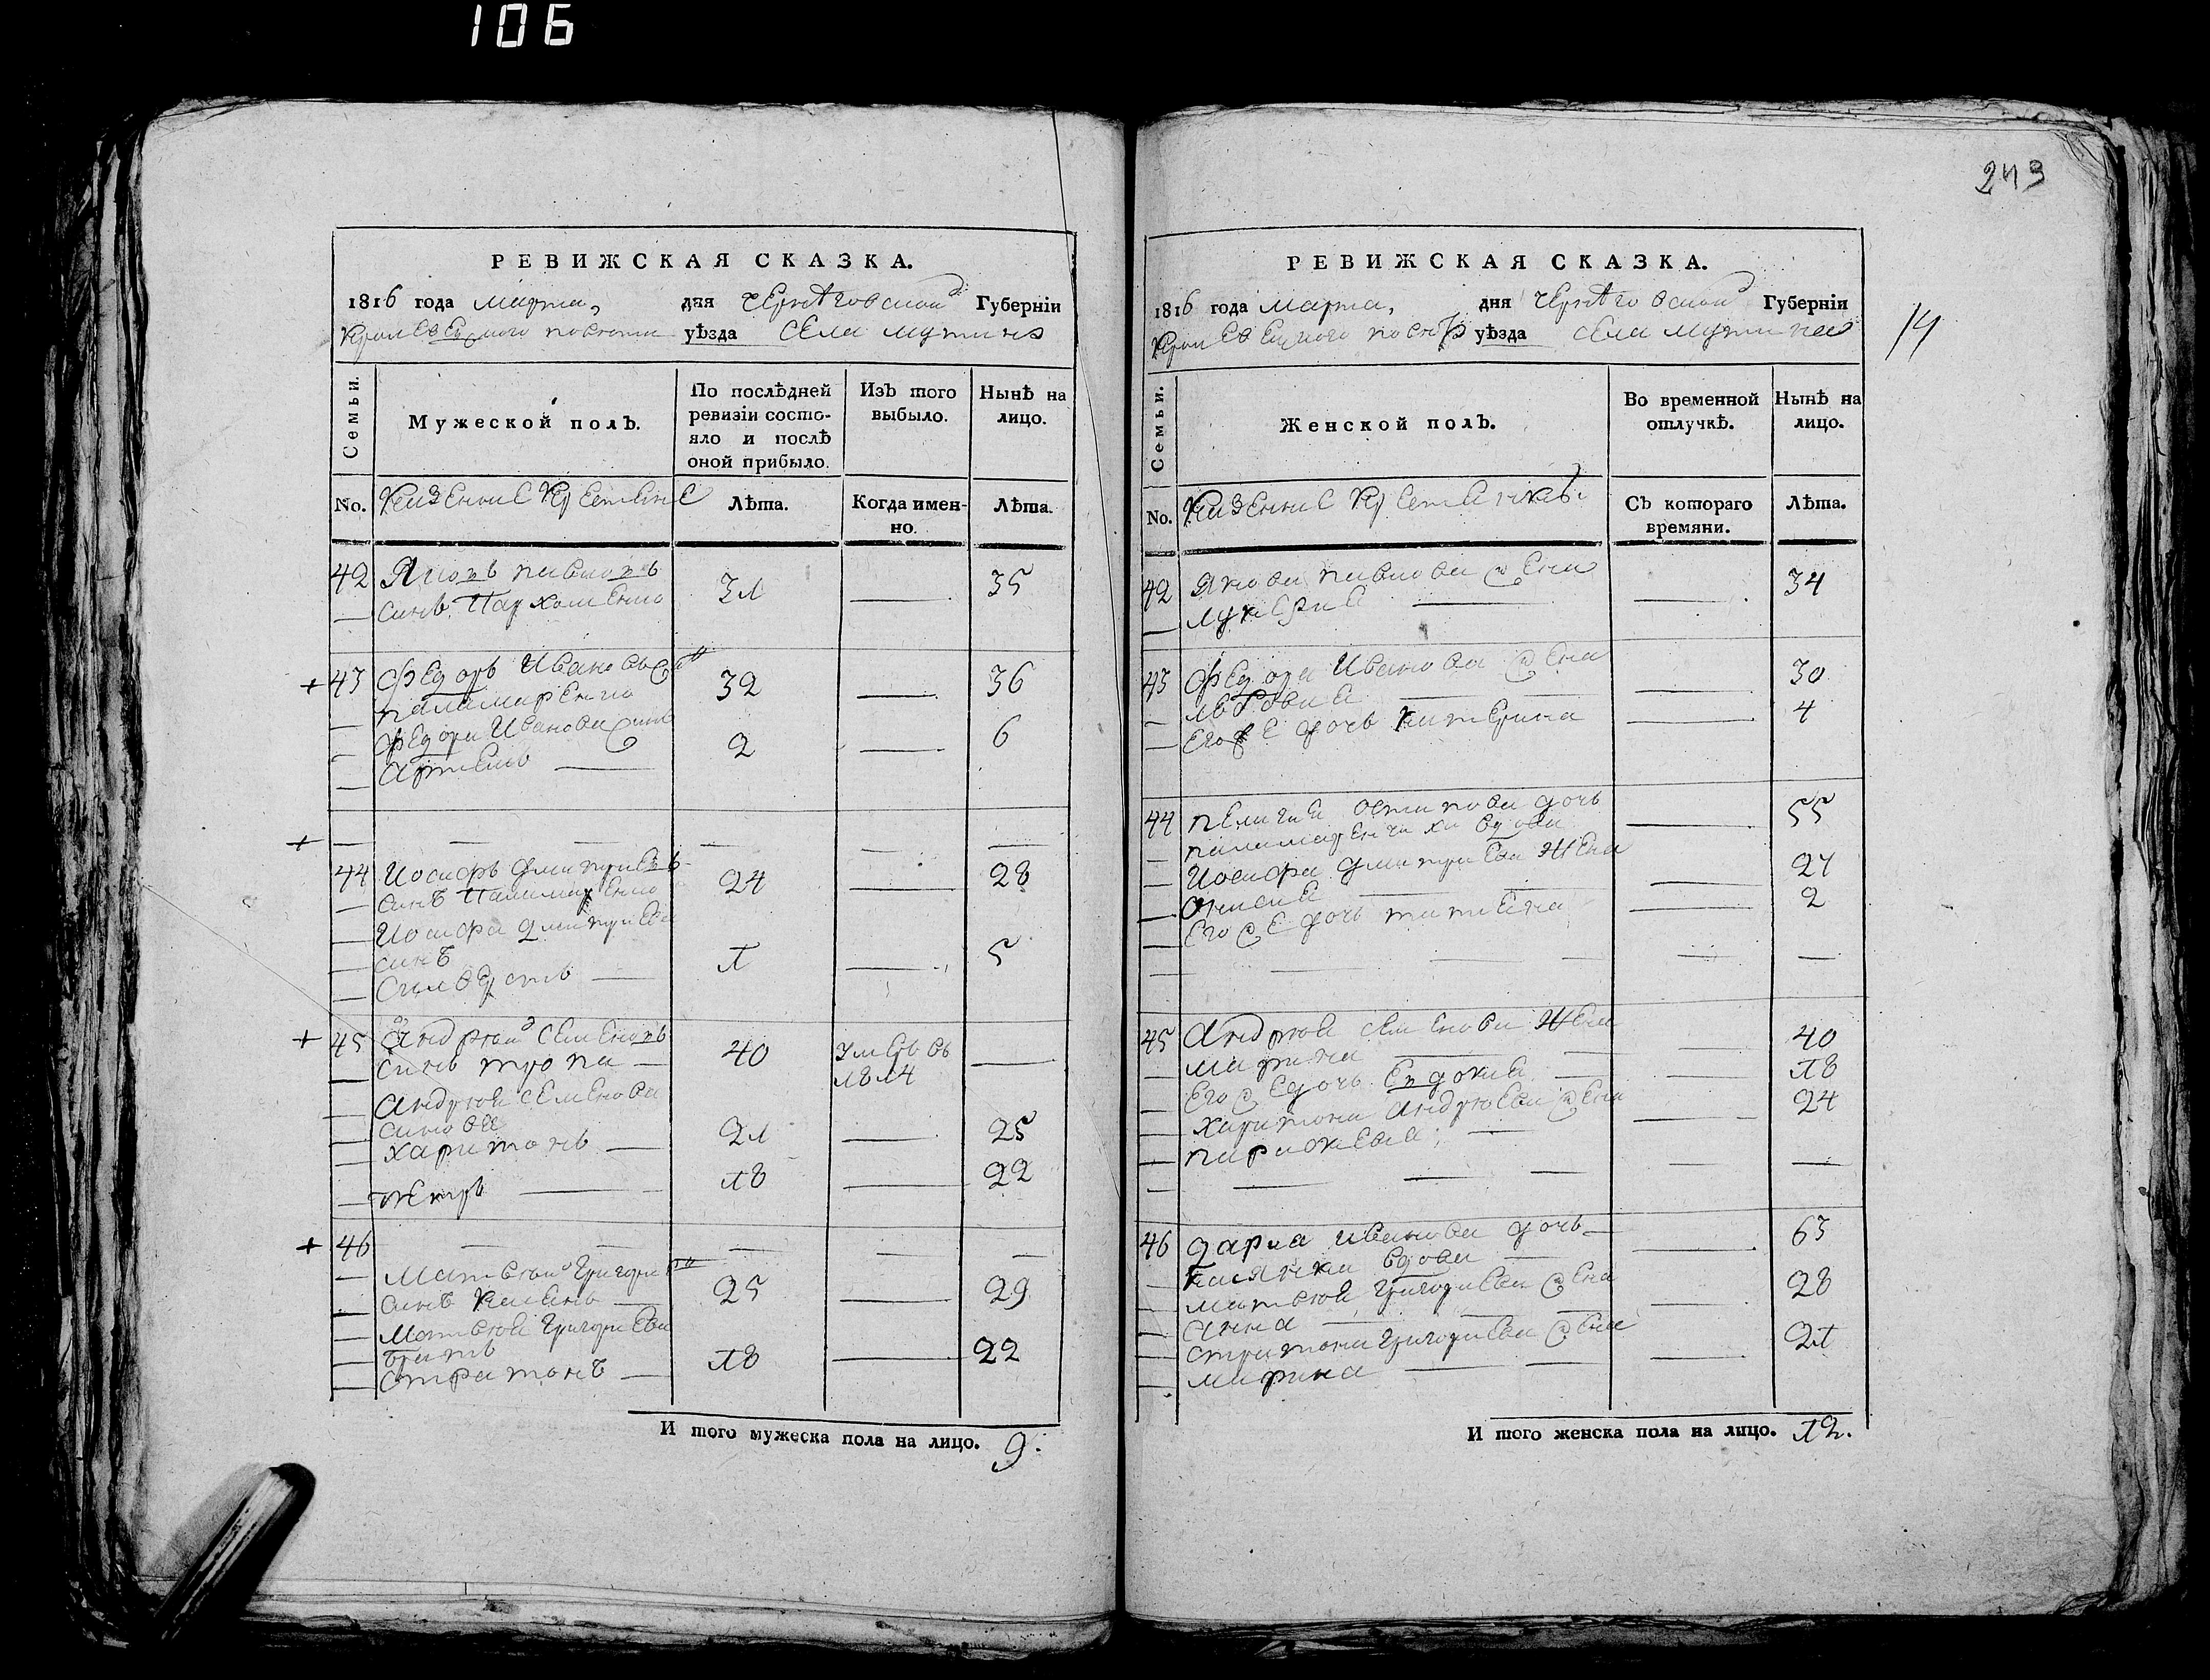 106
243
РЕВИЖСКАЯ СКАЗКА.
1816 года марта, дня Чернѣговской Губерніи
Кролевецкого повѣта уѣзда села мутина
Семьи.
Мужеской полъ.
По послѣдней ревизіи состояло и послѣ оной прибыло.
Изъ того выбыло.
Нынѣ на лицо.
No. Казенние Крестяне
Лѣта.
Когда именно.
Лѣта.
42 Яковъ павловъ 31 — 35
— синъ Пархоменко
+ 43 Федоръ Ивановъ синъ 32 — 36
— паламаренко
— Федора Иванова синъ 2 — 6
— Артемъ —
+ — — — — — —
44 Иосифъ Дмитриевъ 24 — 28
— синъ Паламаренко
— Иосифа Дмитриева
— синъ 1 — 5
— Силвестъ —
+ 45 Андрѣй Семеновъ 40 умеръ въ —
— синъ тропа — 1814
— Андрѣя Семенова
— синовя
— Харитонъ — 21 — 25
— Петръ — 18 — 22
+ 46 — — — — —
— Матвѣй Григориевъ 25 — 29
— синъ Калинъ —
— Матвѣя Григориева
— братъ
— Стратонъ — 18 — 22
И того мужеска пола на лицо. 9.
РЕВИЖСКАЯ СКАЗКА.
1816 года марта, дня Чернѣговской Губерніи
Кролевецкого повѣта уѣзда села мутина
14
Семьи.
Женской полъ.
Во временной отлучкѣ.
Нынѣ на лицо.
No. Казенние Крестянки
Съ котораго времяни.
Лѣта.
42 Якова павлова жена — 34
— лукерия —
43 Федора Иванова жена — 30
— —
— Его же дочь катерина — 4
44 пелагия остапова дочь — 55
— паламаренчиха вдова
— Иосифа Дмитриева жена — 27
— Онисия —
— Его же дочь татияна — 2
— — — — — —
45 Андрѣя Семенова жена — 40
— марина —
— Его же дочь Евдокия — 18
— Харитона Андрѣева жена — 24
— параскевия —
— — — — —
46 Дария иванова дочь — 63
— калянка вдова —
— матвѣя григориева жена — 28
— анна —
— стратона григориева жена — 21
— марина —
И того женска пола на лицо. 12.